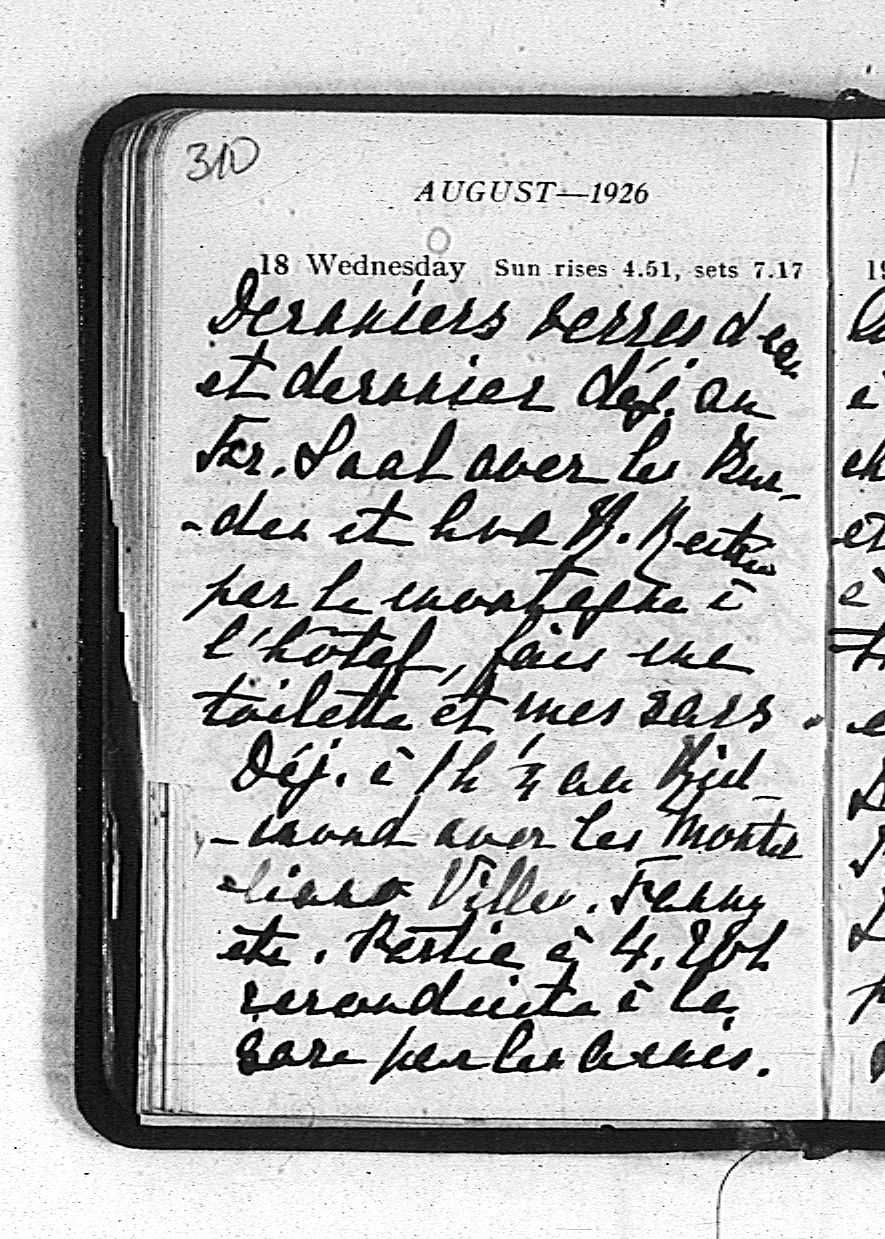 310
AUGUST—1926
18 Wednesday Sun rises 4.51, sets 7.17
Derniers verres d'eau
et dernier déj. au
Fer. Saal avec les
-des et
par la montagne à
l'hôtel, fais une
toilette et mes sacs.
Déj. à 1h ¼ au Rich-
-mond avec les Monte
Villes. Fanny
etc. Partie à 4.20h
reconduite à la
gare par les amis.